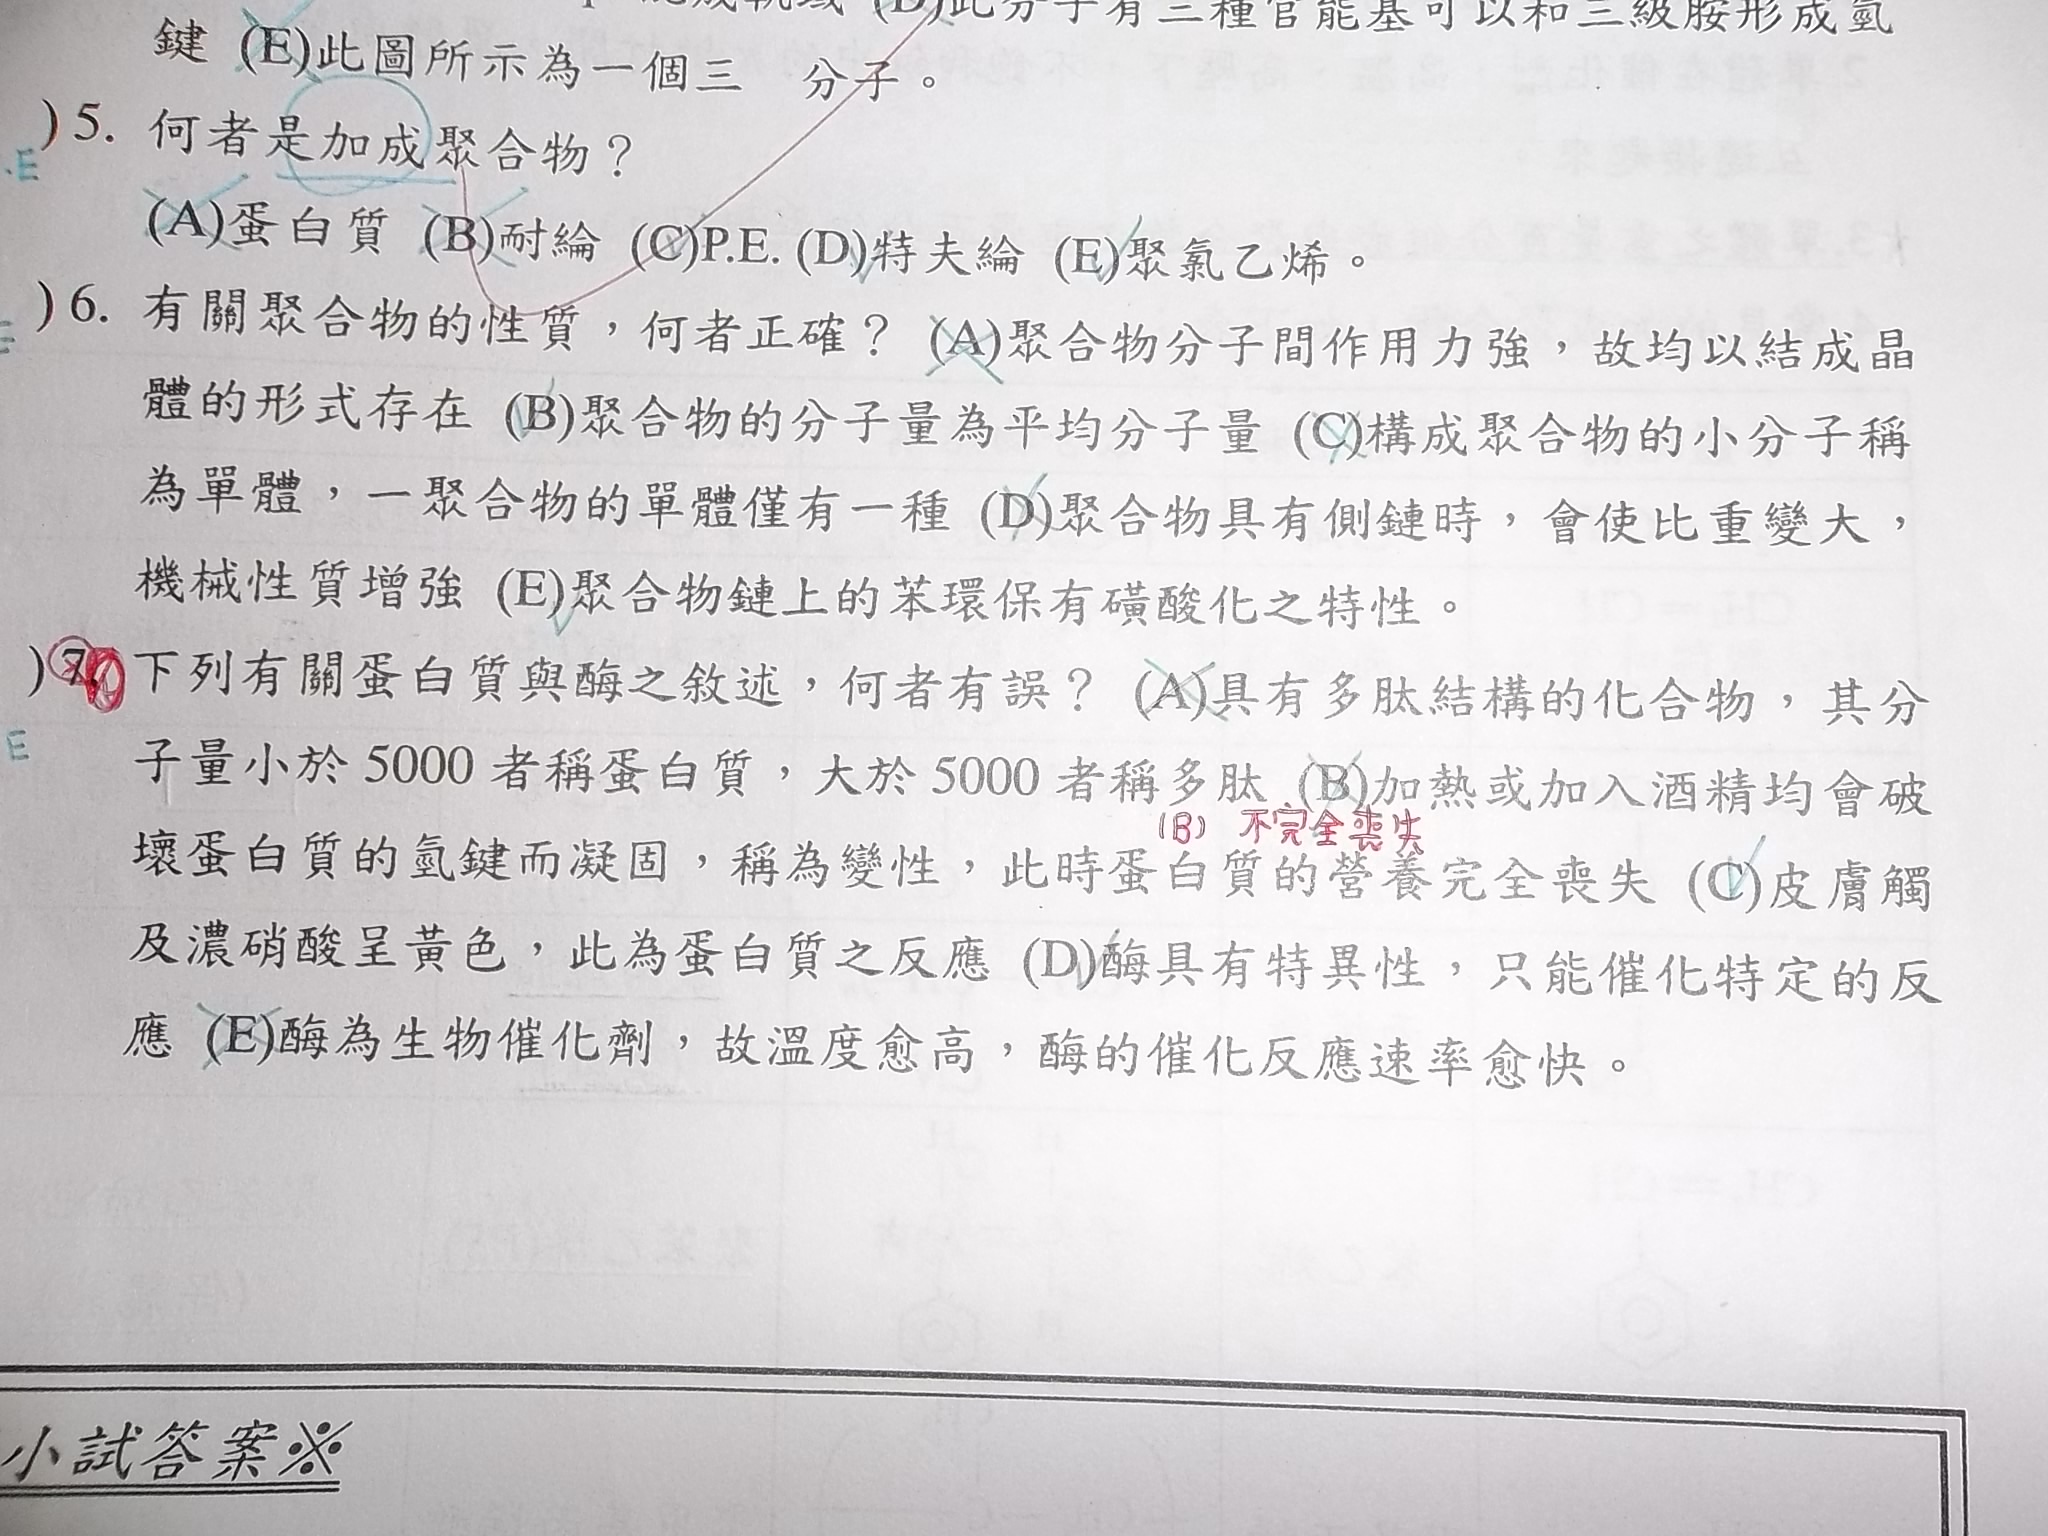 此分子有三種官能基可以和三級胺形成氫
鍵 (E)此圖所示為一個三 分子。
)5. 何者是加成聚合物？
E
(A)蛋白質 (B)耐綸 (C)P.E. (D)特夫綸 (E)聚氯乙烯。
)6. 有關聚合物的性質，何者正確？ (A)聚合物分子間作用力強，故均以結成晶
體的形式存在 (B)聚合物的分子量為平均分子量 (C)構成聚合物的小分子稱
為單體，一聚合物的單體僅有一種 (D)聚合物具有側鏈時，會使比重變大，
機械性質增強 (E)聚合物鏈上的苯環保有磺酸化之特性。
)7. 下列有關蛋白質與酶之敘述，何者有誤？ (A)具有多肽結構的化合物，其分
E
子量小於 5000 者稱蛋白質，大於 5000 者稱多肽 (B)加熱或加入酒精均會破
(B) 不完全喪失
壞蛋白質的氫鍵而凝固，稱為變性，此時蛋白質的營養完全喪失 (C)皮膚觸
及濃硝酸呈黃色，此為蛋白質之反應 (D)酶具有特異性，只能催化特定的反
應 (E)酶為生物催化劑，故溫度愈高，酶的催化反應速率愈快。
小試答案※